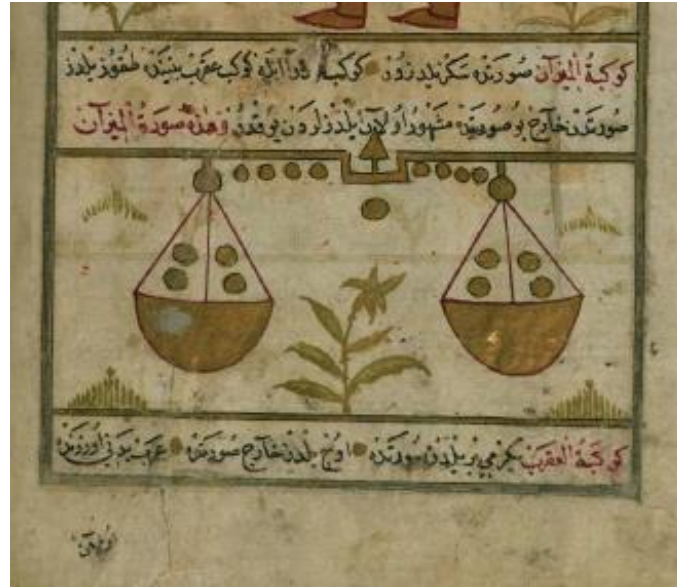 كوكبة الميزان صورتنده سكز يلدزدر كوكبه عذرا ايله كوكب عقرب بيننده طقوز يلدز
صورتدن خارج بو صورتده مشهور اولان يلدزلردن يوقدر وهذه صورة الميزان
كوكبة العقرب يكرمي بر يلدز صورتنده اوچ يلدز خارج صورتدن عرب